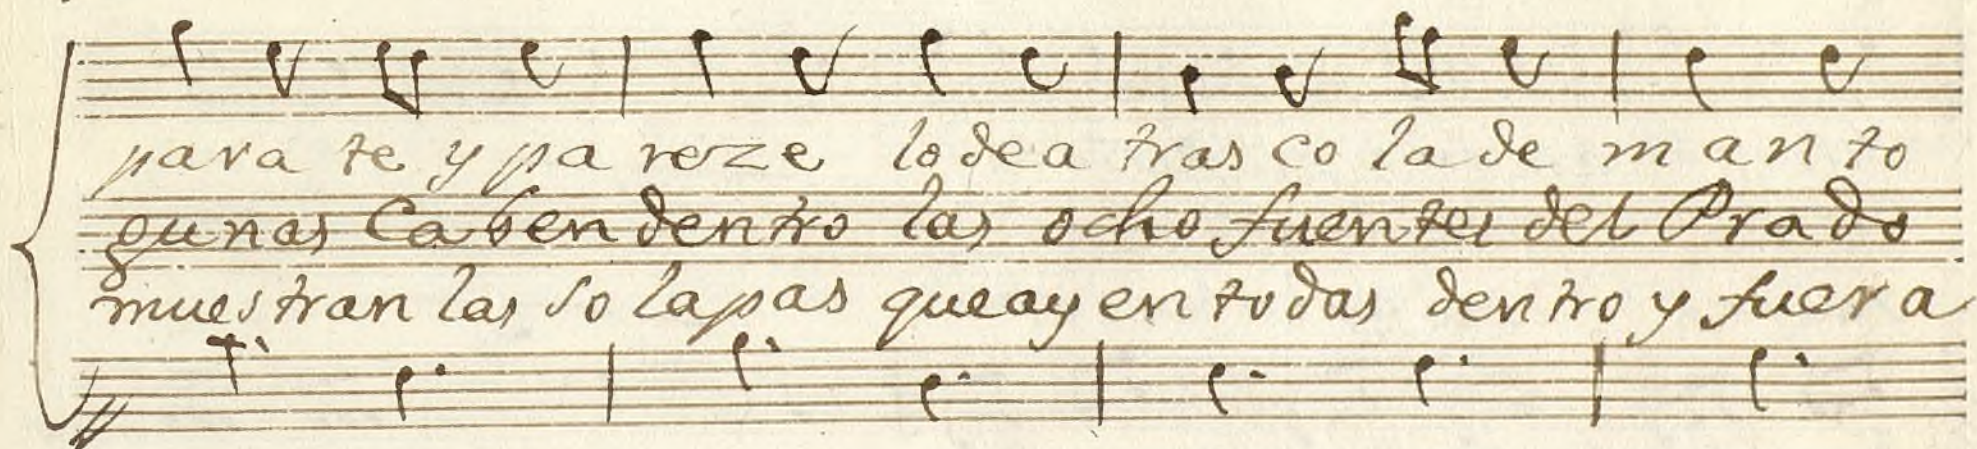 para te y pa reze lo de a tras co la de man to
gunas Caben dentro las ocho fuentes del Prado
muestran las so lapas que ay en todas dentro y fuera